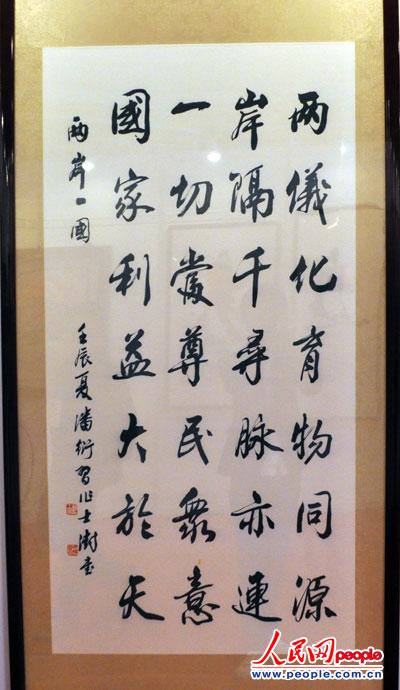 两儀化育物同源
岸隔千尋脉亦連
一切當尊民衆意
國家利益大於天
兩岸一國
壬辰夏潘衍習作士澍書
人民网people
www.people.com.cn